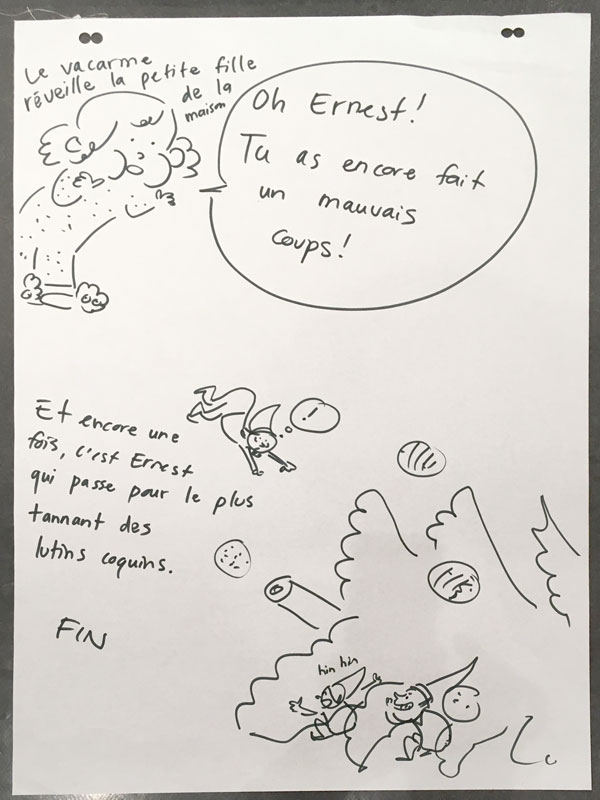 Le vacarme
réveille la petite fille
de la
maison
Oh Ernest!
Tu as encore fait
un mauvais
coups!
!
Et encore une
fois, c'est Ernest
qui passe pour le plus
tannant des
lutins coquins.
FIN
hin hin